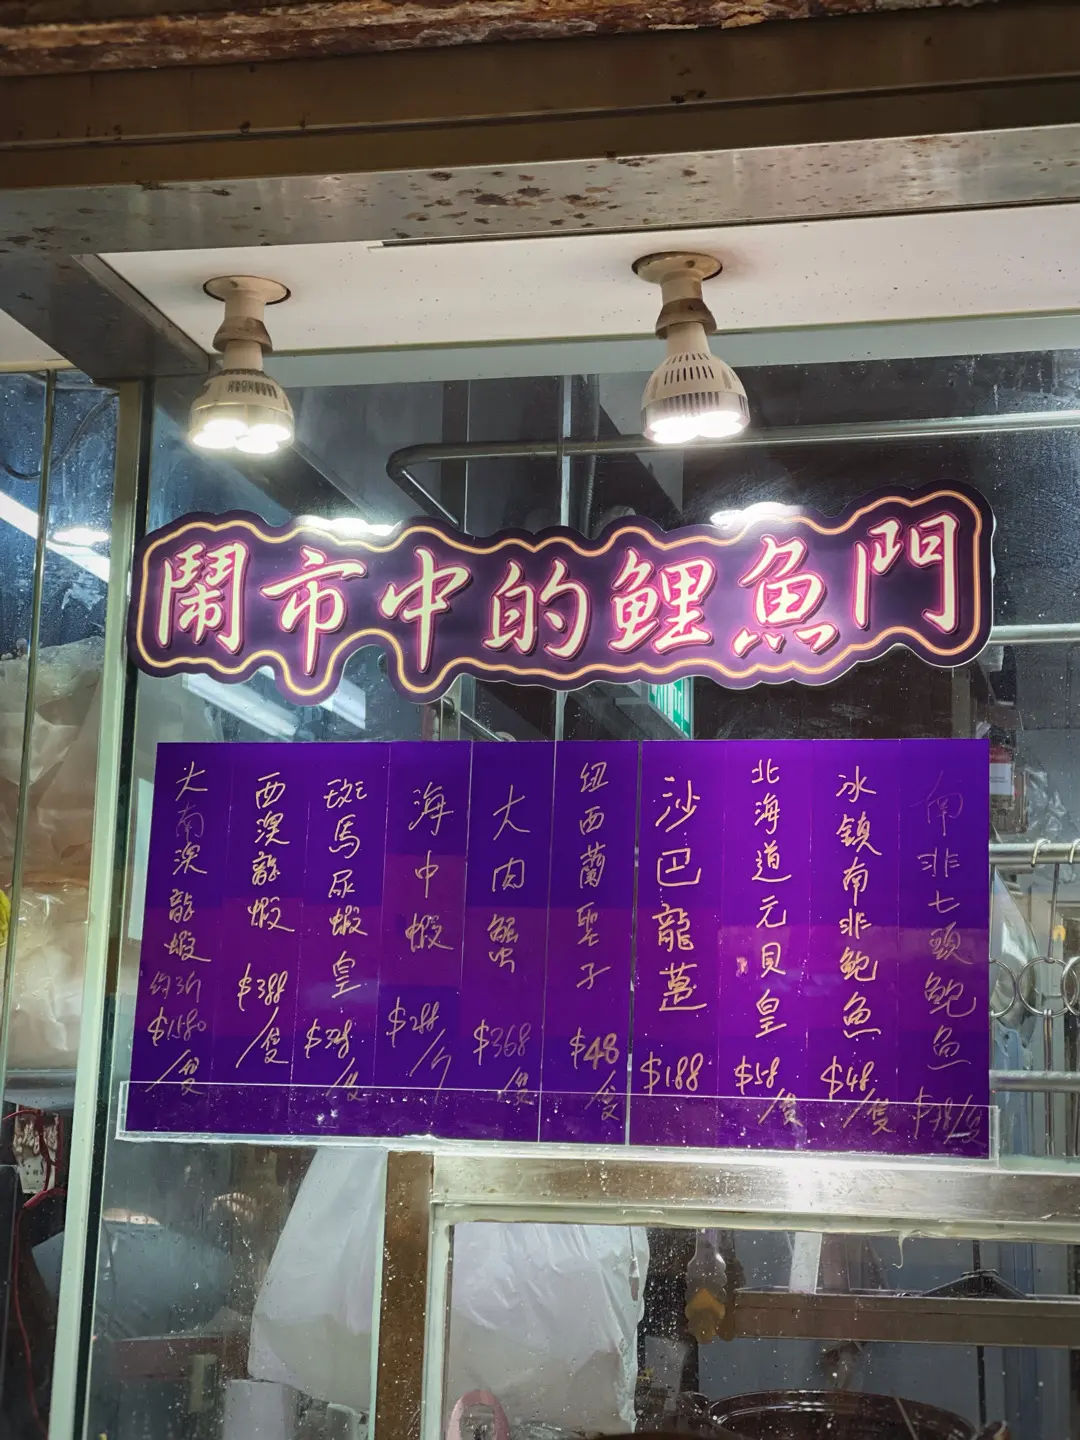 鬧市中的鯉魚門
南非七頭鮑魚
冰鎮南非鮑魚
$48/隻
北海道元貝皇
$58/隻
沙巴龍躉
$188
紐西蘭聖子
$48/隻
大肉蟹
$368/隻
海中蝦
$288/斤
斑馬尿蝦皇
西澳龍蝦
$388/隻
大南澳龍蝦
約3斤
$1580/隻